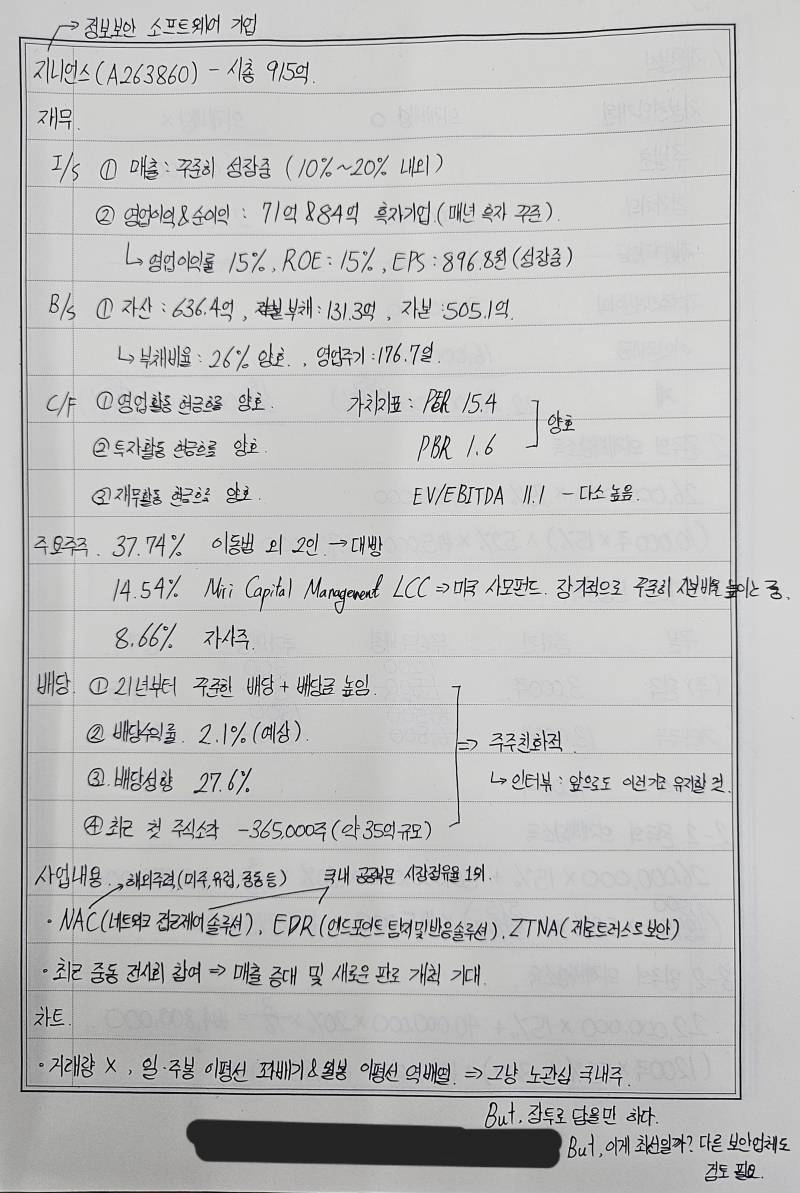 정보보안 소프트웨어 기업
지니언스(A263860) - 시총 915억.
재무.
I/S ① 매출 : 꾸준히 성장중 (10%~20% 내외)
② 영업이익&순이익 : 71억&84억 흑자기업.(매년 흑자 꾸준).
↳ 영업이익률 15%, ROE : 15%, EPS : 896.8원(성장중)
B/S ① 자산 : 636.4억, 부채 : 131.3억, 자본 : 505.1억.
↳ 부채비율 : 26% 양호. , 영업주기 : 176.7일.
C/F ① 영업활동 현금흐름 양호. 가치지표 : PER 15.4
② 투자활동 현금흐름 양호. PBR 1.6 양호
③ 재무활동 현금흐름 양호. EV/EBITDA 11.1 - 다소 높음.
주요주주. 37.74% 이동범 외 2인 → 대빵
14.54% Miri Capital Management LCC ⇒ 미국 사모펀드. 장기적으로 꾸준히 지분비율 높이는 중.
8.66% 자사주.
배당. ① 21년부터 꾸준한 배당 + 배당금 높임.
② 배당수익률. 2.1%(예상).
⇒ 주주친화적.
③. 배당성향 27.6%
↳ 인터뷰 : 앞으로도 이런기조 유지할 것.
④ 최근 첫 주식소각 -365,000주(약 35억 규모)
사업내용. 해외주력(미주,유럽,중동 등) 국내 공공부문 시장점유율 1위.
· NAC(네트워크 접근제어 솔루션), EDR(엔드포인트 탐지및반응솔루션). ZTNA(제로트러스트보안)
· 최근 중동 전시회 참여 ⇒ 매출 증대 및 새로운 판로 개척 기대.
차트.
· 거래량 X , 일·주봉 이평선 꽈배기&월봉 이평선 역배열. ⇒ 그냥 노관심 국내주.
But, 장투로 담을만 하다.
But, 이게 최선일까? 다른 보안업체도
검토 필요.